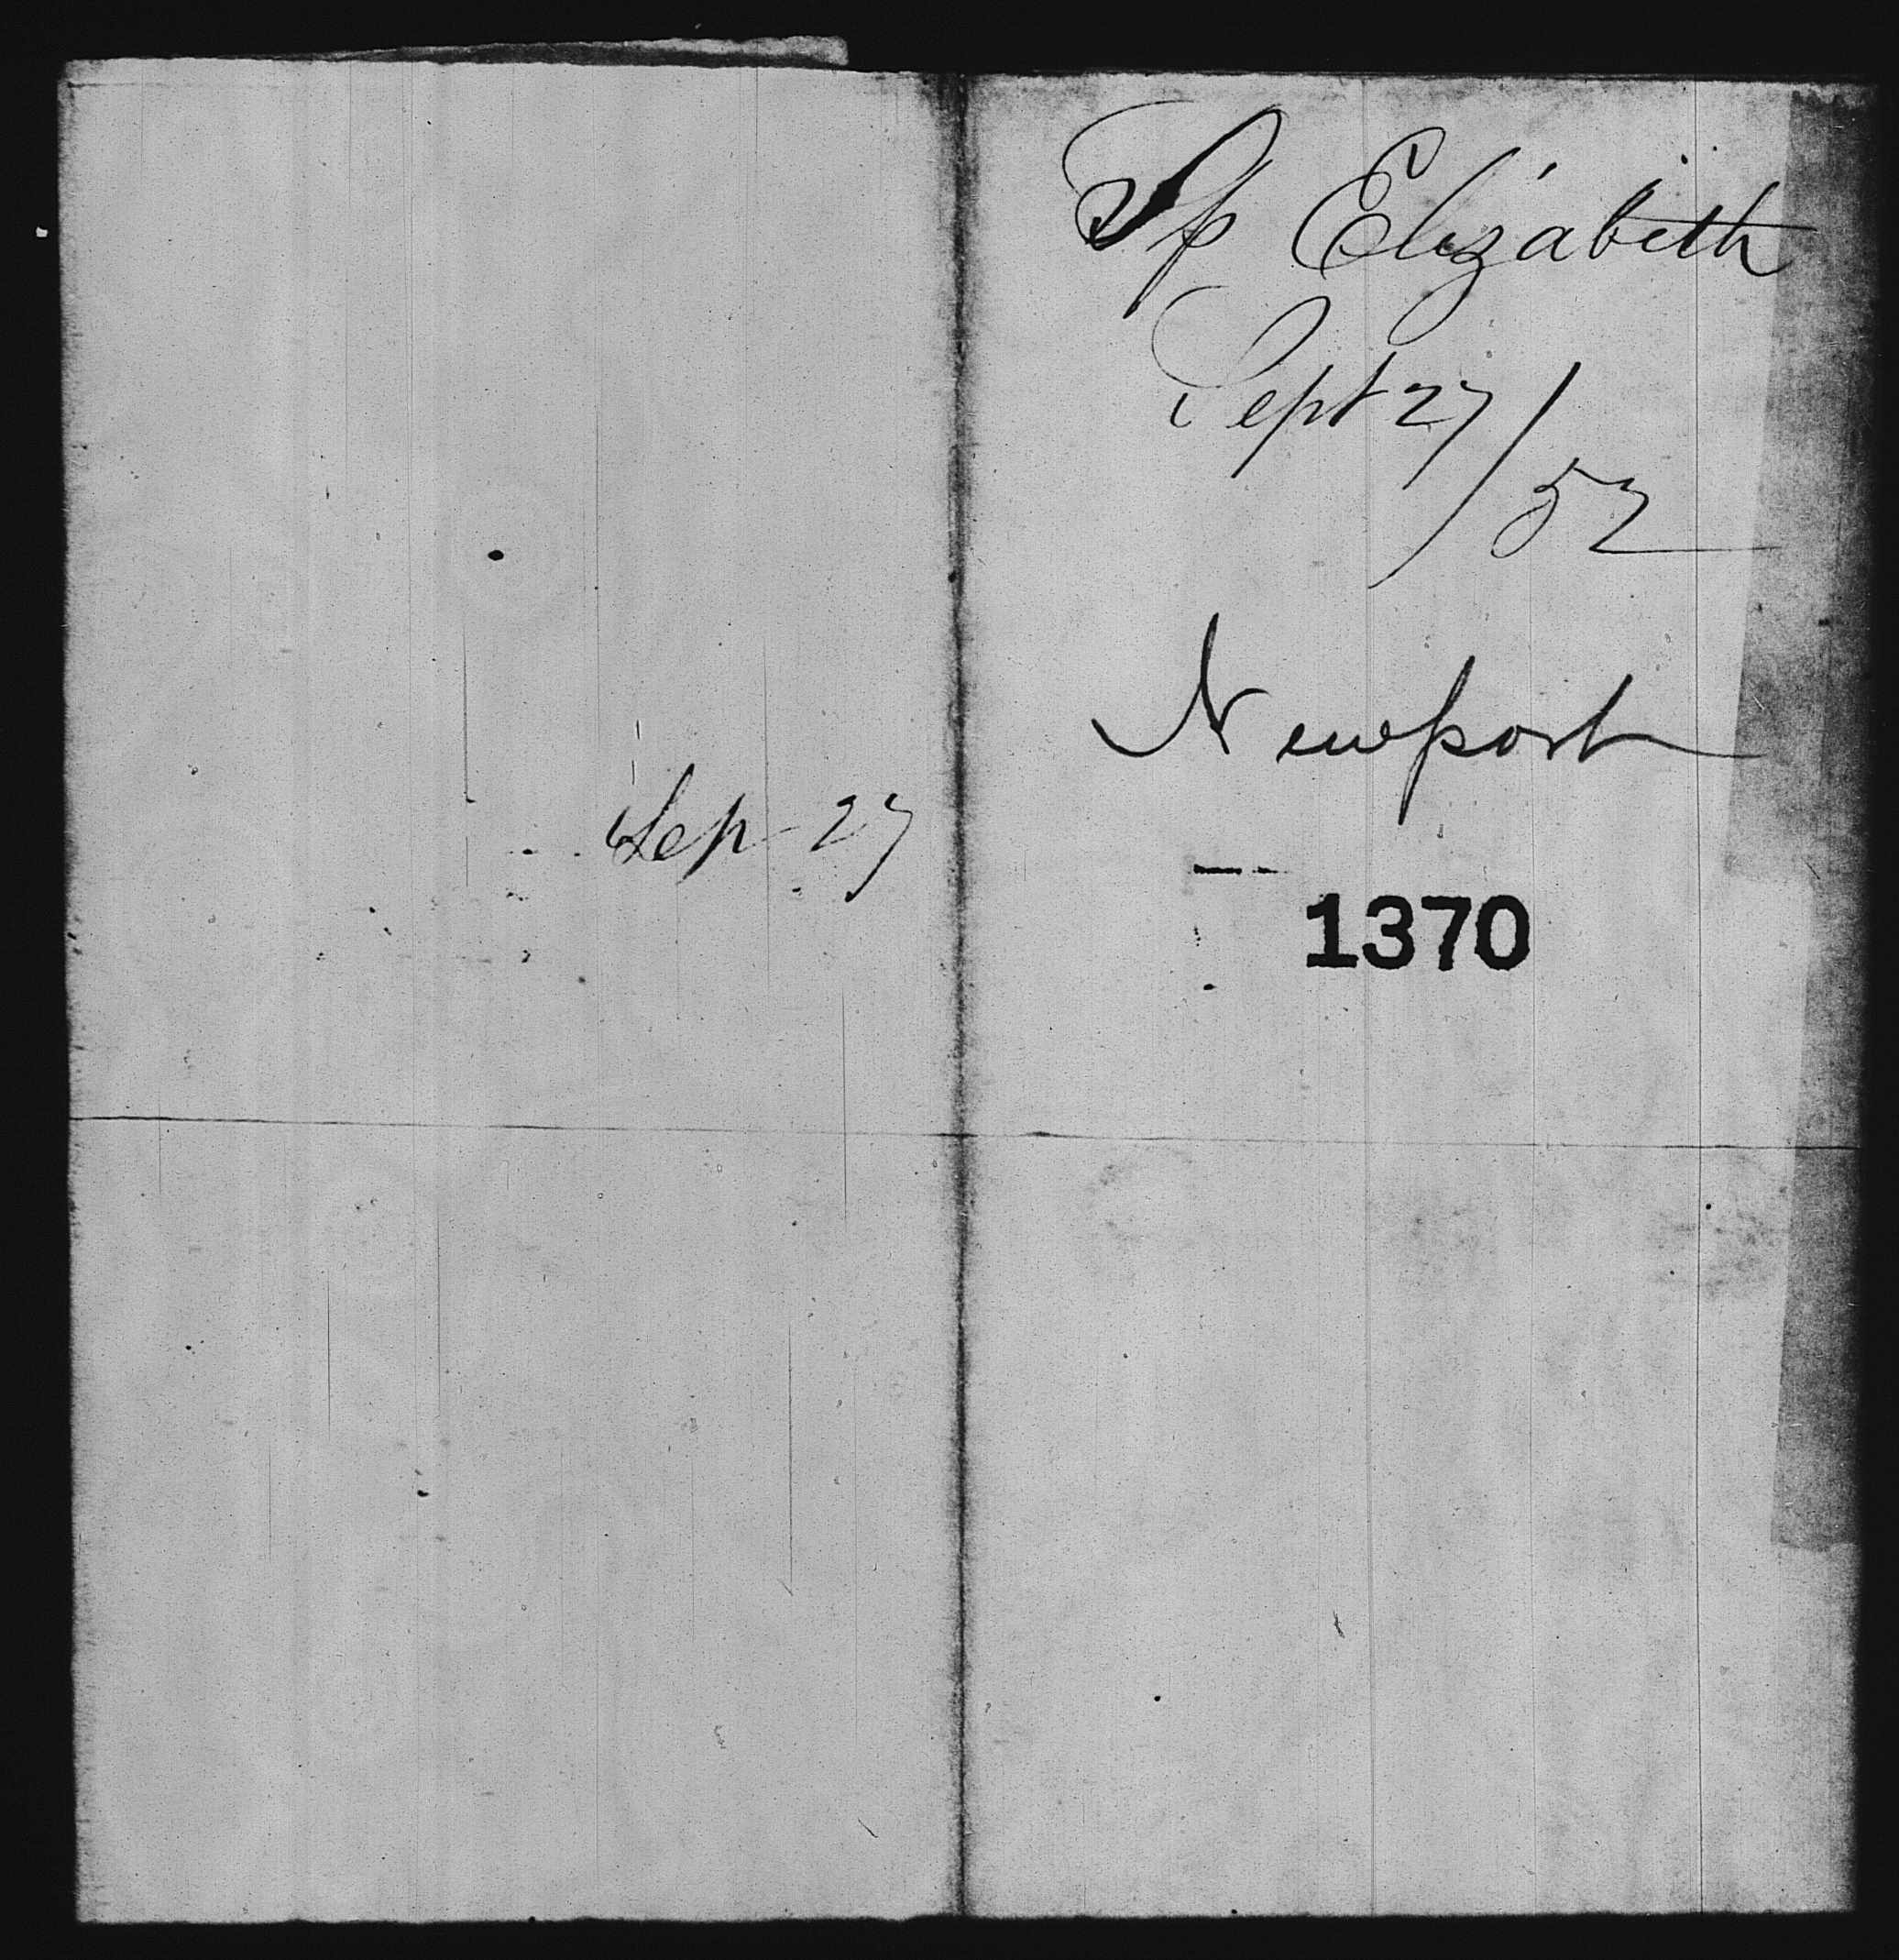 Sep 27
Sp Elizabeth
Sept 27/
52
Newport
1370